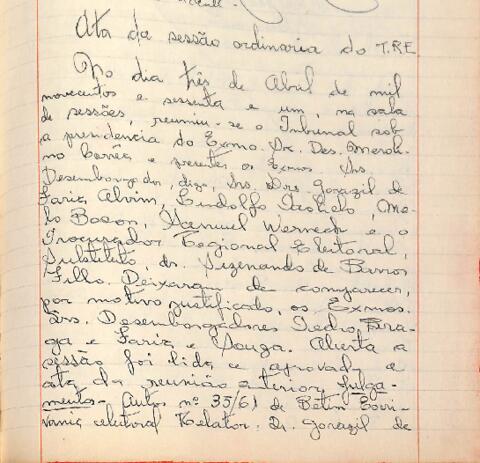 Ata da sessão ordinaria do T.R.E
No dia três de Abril de mil
novecentos e sessenta e um, na sala
de sessões, reuniu-se o Tribunal sob
a presidencia do Exmo. Sr. Des. Merolino
Corrêa e presentes os Exmos. Srs.
Desembargador, digo, Srs. Drs. Gorazil de
Faria Alvim, Lindolfo
Boson, Manuel Werneck e o
Procurador Regional Eleitoral,
Substituto, dr. Sizenando de Barros
Filho. Deixaram de comparecer,
por motivo justificado, os Exmos.
Srs. Desembargadores Pedro Braga
e Faria e Souza. Aberta a
sessão foi lida e aprovada a
ata da reunião anterior. Julgamentos
- Autos nº 35/61 de Betim
eleitoral Relator: Dr. Gorazil de